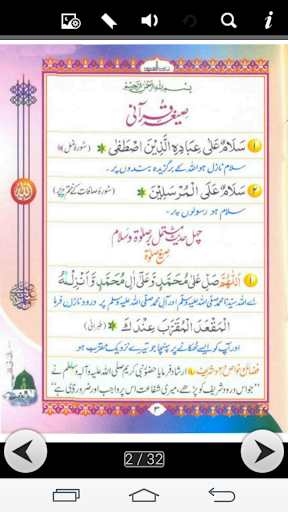 بِسْمِ اللهِ الرَّحْمٰنِ الرَّحِيْمِ
صیغہ قرآنی
۱ سَلَامٌ عَلٰی عِبَادِهِ الَّذِيْنَ اصْطَفٰی (سورۂ نمل)
سلام نازل ہو اللہ کے برگزیدہ بندوں پر۔
۲ سَلَامٌ عَلَی الْمُرْسَلِيْنَ
سلام ہو رسولوں پر۔
چہل حدیث مشتمل بر صلوٰۃ و سلام
صیغ صلوٰۃ
۱ اَللّٰهُمَّ صَلِّ عَلٰی مُحَمَّدٍ وَّعَلٰی اٰلِ مُحَمَّدٍ وَّاَنْزِلْهُ
اے اللہ سیدنا محمد صلی اللہ علیہ وسلم اور آل محمد صلی اللہ علیہ وسلم پر درود نازل فرما
الْمَقْعَدَ الْمُقَرَّبَ عِنْدَكَ (طبرانی)
اور آپ کو ایسے ٹھکانے پر پہنچا جو تیرے نزدیک مقرب ہو
۱ ارشاد فرمایا حضور نبی کریم صلی اللہ علیہ وآلہ وسلم نے
"جو اس درود شریف کو پڑھے، میری شفاعت اس پر واجب اور ضروری ہے"
۳
2 / 32